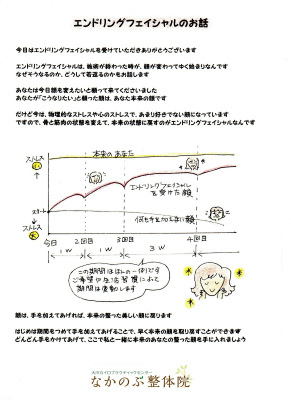 エンドリングフェイシャルのお話
今日はエンドリングフェイシャルを受けていただきありがとうございます
エンドリングフェイシャルは、施術が終わった時が、顔が変わってゆく始まりなんです
なぜそうなるのか、どうして若返るのかをお話します
あなたは今日顔を変えたいと願って来てくださいました
あなたが「こうなりたい」と願った顔は、あなた本来の顔です
だけど今は、物理的なストレスや心のストレスで、あまり好きでない顔になっています
ですので、骨と筋肉の状態を変えて、本来の状態に戻すのがエンドリングフェイシャルなんです
ストレス
小
本来のあなた
エンドリングフェイシャル
を受けた顔
スタート
何も手を加えない顔
ストレス
大
今日 2回目 3回目 4回目
1W 1W 3W
この期間はほんの一例です
ご希望や生活習慣によって
期間は変動します
顔は、手を加えてあげれば、本来の整った美しい顔に戻ります
はじめは期間をつめて手を加えてあげることで、早く本来の顔を取り戻すことができます
どんどん手をかけてあげて、ここで私と一緒に本来のあなたの整った顔を手に入れましょう
なかのぶ整体院